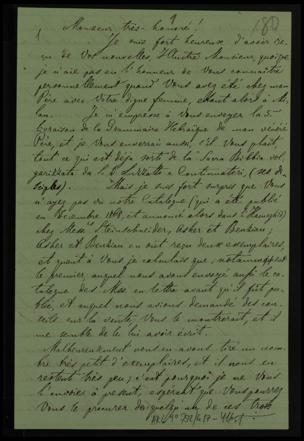 180
1
Monsieur très-honoré!
Je suis fort heureux d'avoir re-
çu de vos nouvelles, Illustre Monsieur, quoique
je n'aie pas eu l'honneur de vous connaître
personnellement quand vous avez été chez mon
Père avec votre digne femme, étant alors à Mi-
lan. Je m'empresse à vous envoyer la 5me
livraison de la Grammaire Hébraïque de mon vénéré
Père, et je vous enverrai aussi, s'il vous plaît,
tout ce qui est déjà sorti de la Sacra Bibbia vol-
garizzata da S. D. Luzzatto e Continuatori,
Mais je suis fort surpris que vous
n'ayez pas vu notre Catalogue (qui a été publié
en Décembre 1868, et annoncé alors dans l'Hamaghid)
chez Messrs Steinschneider, Asher et Benzian;
Asher et Benzian en ont reçu deux exemplaires,
et quant à vous je calculais que
le premier, auquel nous avons envoyé aussi le ca-
talogue des Mss. en lettre avant qu'il fût pu-
blié, et auquel nous avions demandé des con-
seils sur la vente, vous le montrerait, et il
me semble de le lui avoir écrit.
Malheureusement nous en avons tiré un nom-
bre très petit d'exemplaires, et il nous en
restent très peu; c'est pourquoi je ne vous
l'envoie à présent, espérant que vous pourrez
vous le procurer de quelqu'un de ces trois